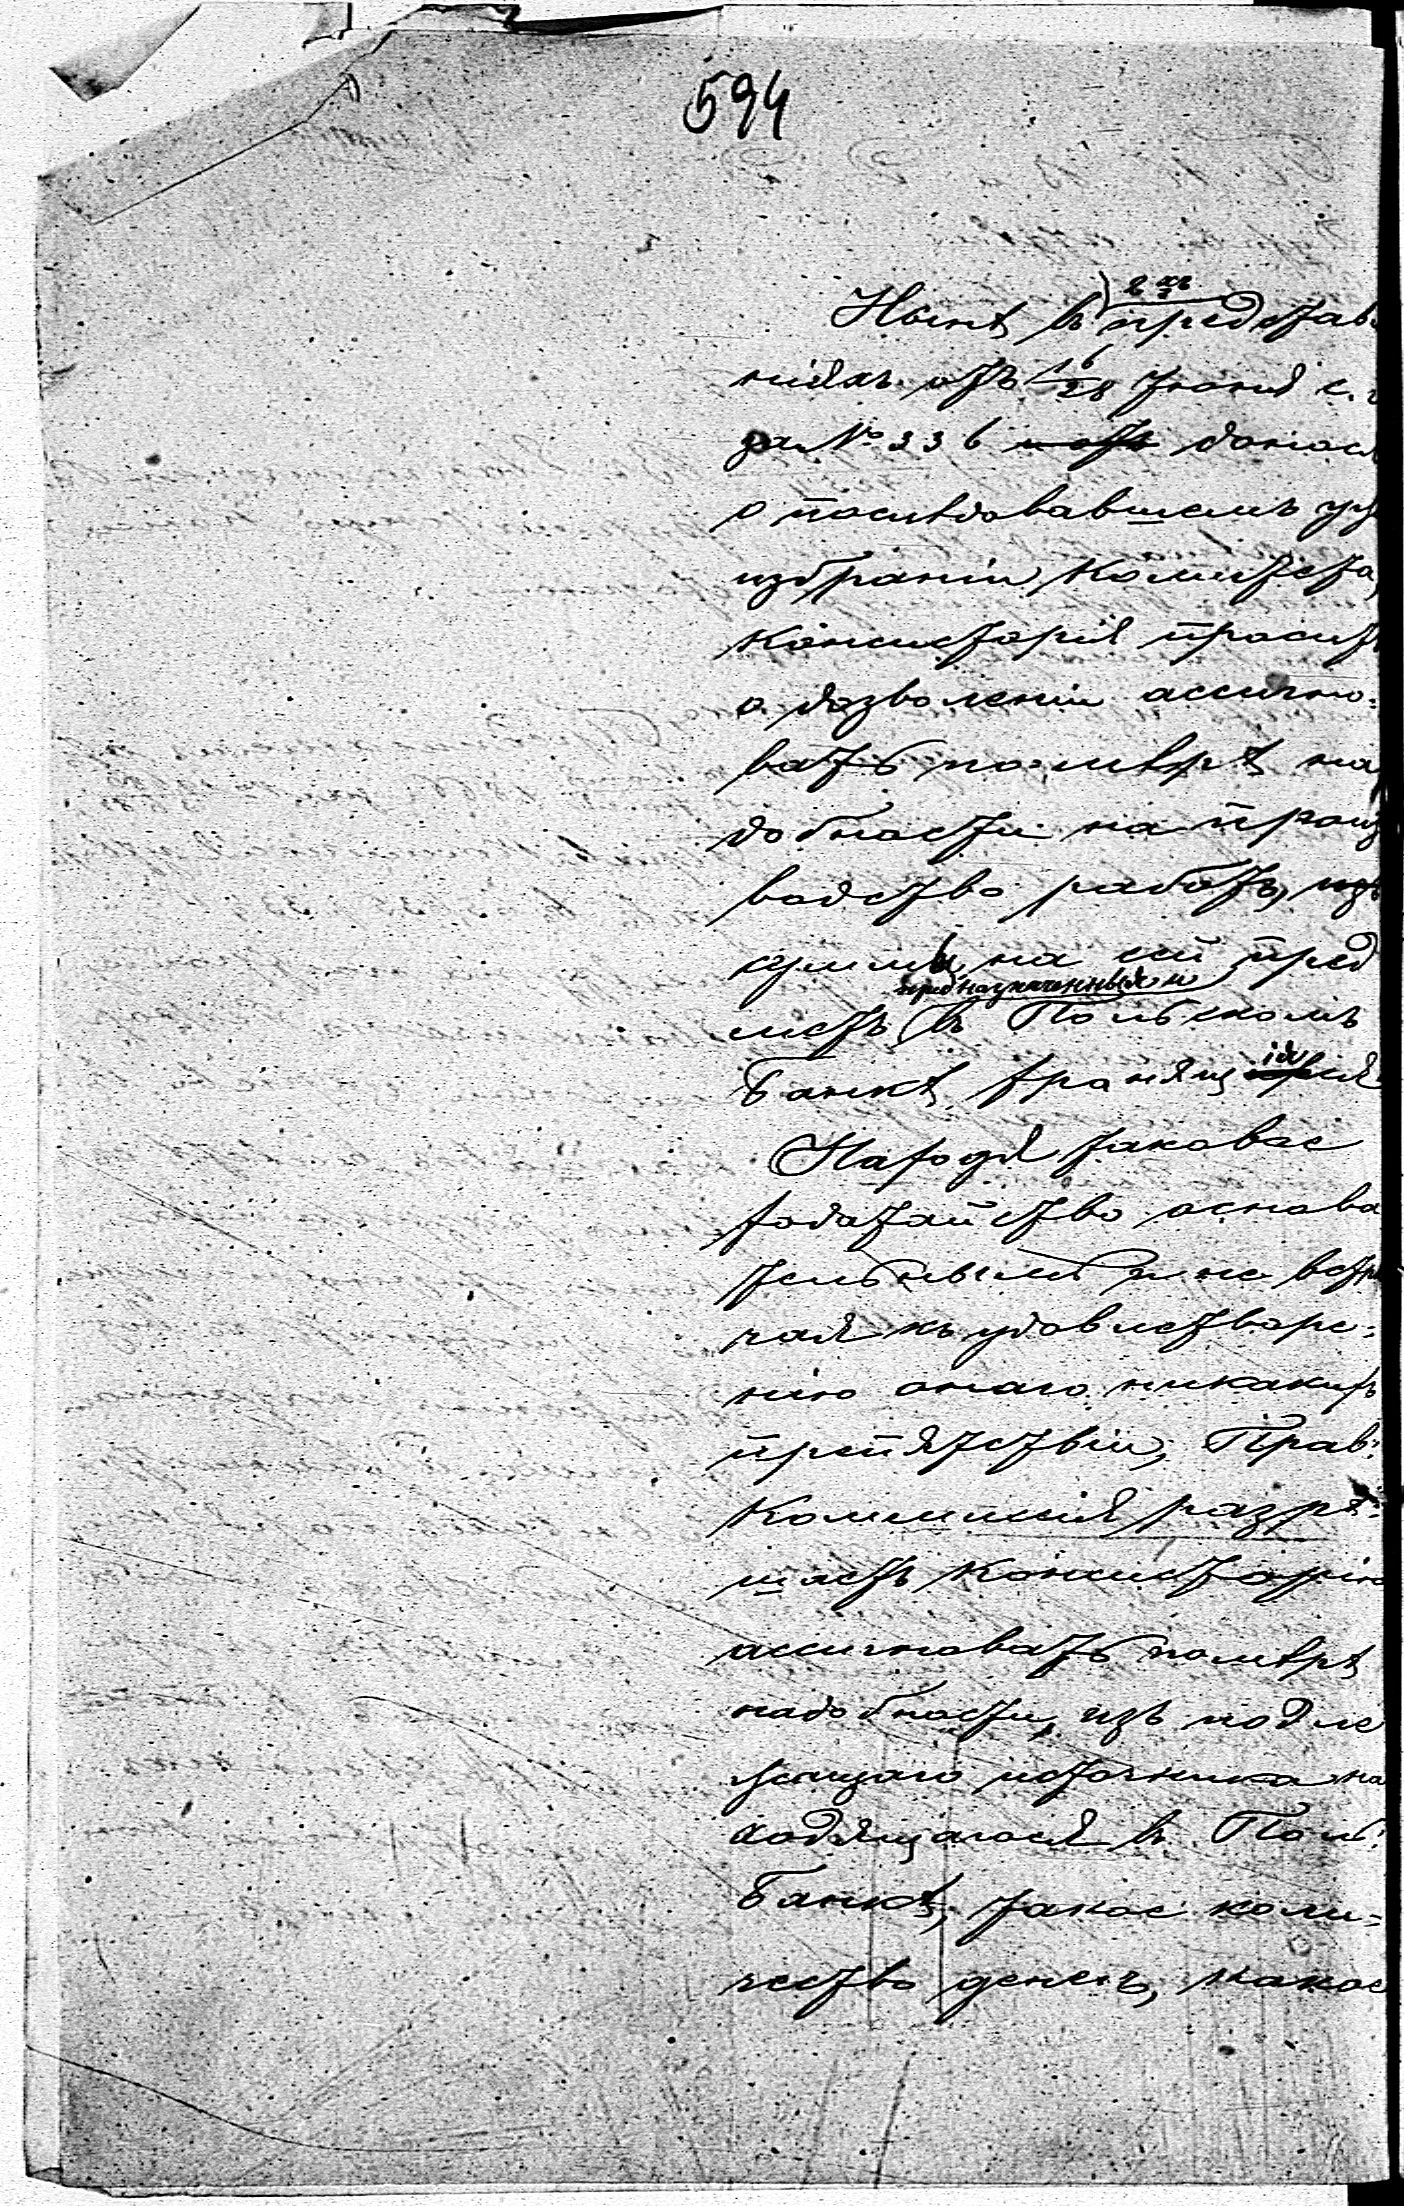 594
2хъ
Нынѣ въ представ
ніяхъ отъ 16/28 Іюня с. г
за № 336 донося
о послѣдовавшемъ уже
избраніи Комитета,
Консисторія проситъ
о дозволеніи ассигно=
вать по мѣрѣ на
добности на произ
водство работъ, изъ
суммы, на сей пред
предназначенныя и
метъ въ Польскомъ
Банкѣ хранящіяся
Находя таковое
ходатайство основа
тельнымъ и не встрѣ
чая къ удовлетворе=
нію онаго никакихъ
препятствій, Прав:
Коммисія разрѣ=
шаетъ Консисторію
ассигновать по мѣрѣ
надобности, изъ подле
жащаго источника на
ходящагося въ Поль:
Банкѣ, такое коли=
чество денегъ, какое